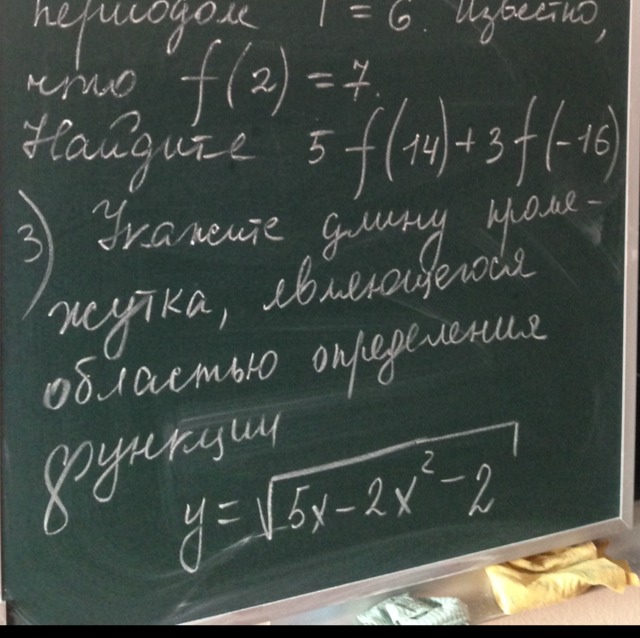 периодом T = 6. Известно,
что f(2) = 7.
Найдите 5f(14)+3f(-16)
3) Укажите длину проме-
жутка, являющегося
областью определения
функции
y = √5x-2x²-2